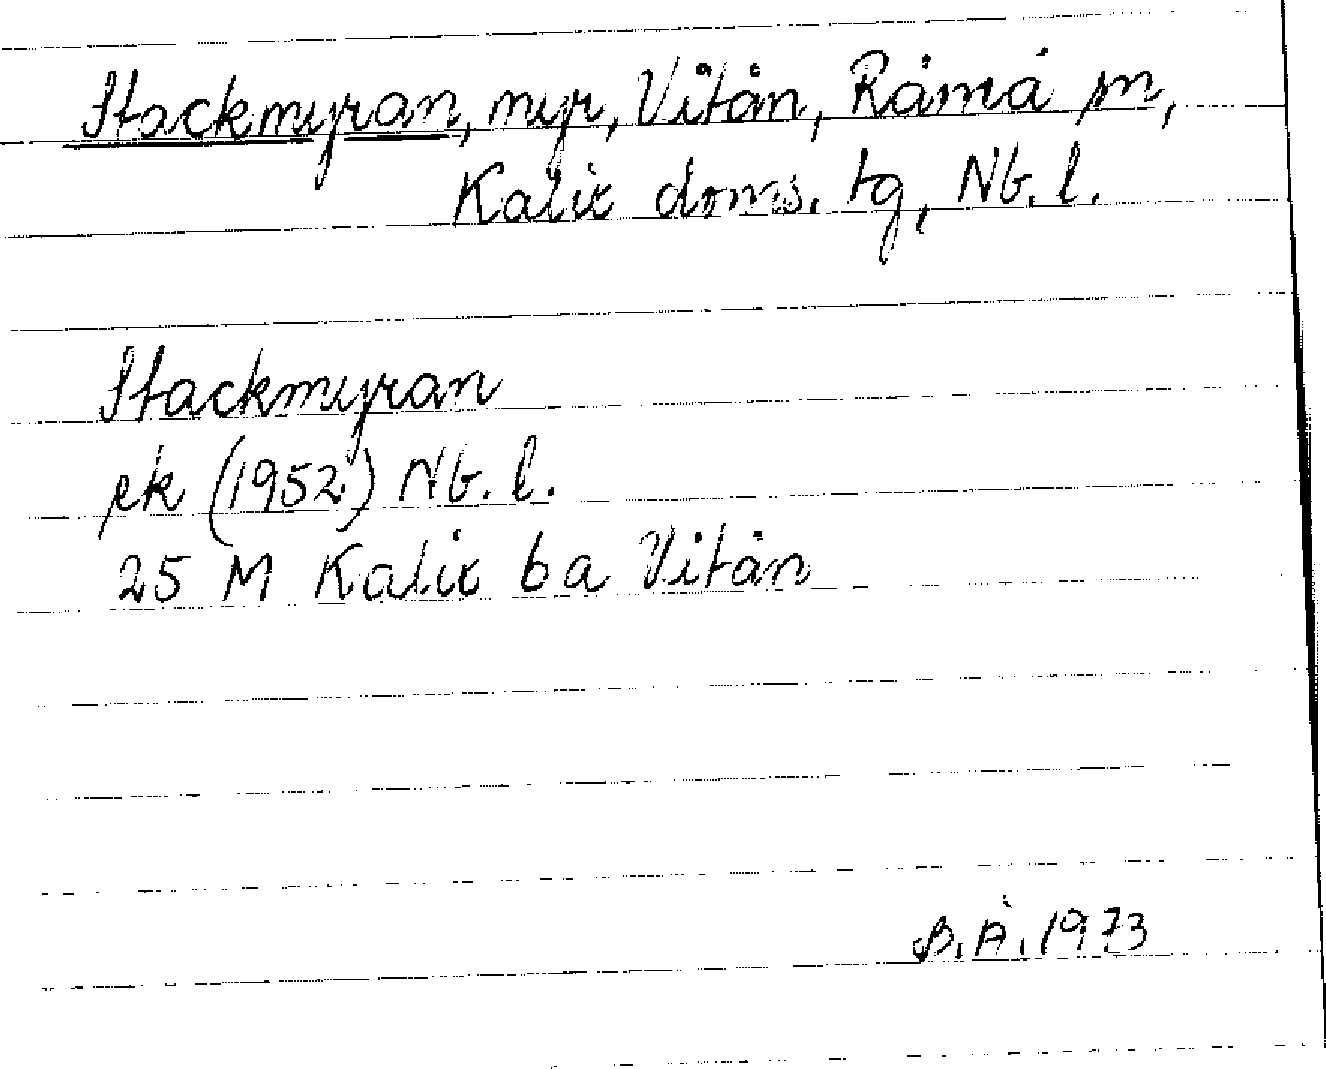 Stackmyran, myr, Vitån, Råmå sn,
Kalix doms. tg, Nb. l.
Stackmyran
ek (1952) Nb. l.
25 M Kalix ba Vitån
B. Å. 1973